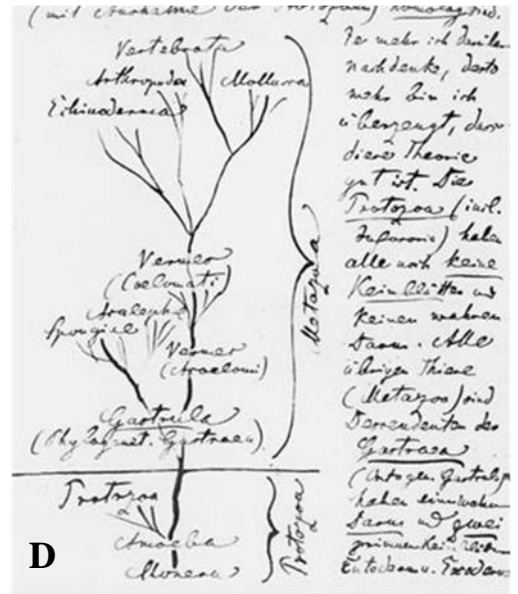 (mit Ausnahme der Protozoen) homolog sind.
Vertebrata
Arthropoda Mollusca
Echinoderma
Vermes
(Coelomati)
Acalephae
Spongiae
Vermes
(Acoelomi)
Gastrula
(Phylogenet. Gastraea)
Metazoa
Protozoa
Amoeba
Monera
Protozoa
Je mehr ich darüber
nachdenke, desto
mehr bin ich
überzeugt, dass
diese Theorie
gut ist. Die
Protozoa (incl.
Infusoria) haben
alle noch keine
Keimblätter und
keinen wahren
Darm. Alle
übrigen Thiere
(Metazoa) sind
Descendenten der
Gastraea
(Ontogen. Gastrula)
haben einen wahren
Darm und zwei
Entoderm u. Exoderm
D